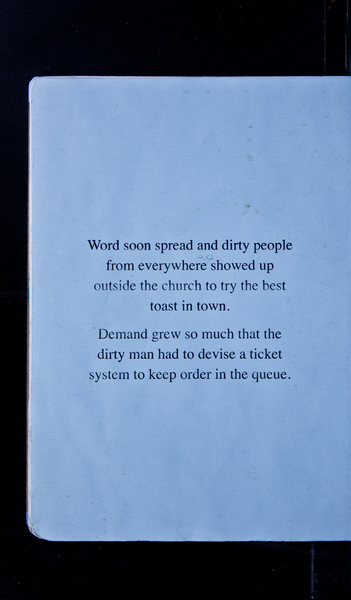 Word soon spread and dirty people
from everywhere showed up
outside the church to try the best
toast in town.
Demand grew so much that the
dirty man had to devise a ticket
system to keep order in the queue.